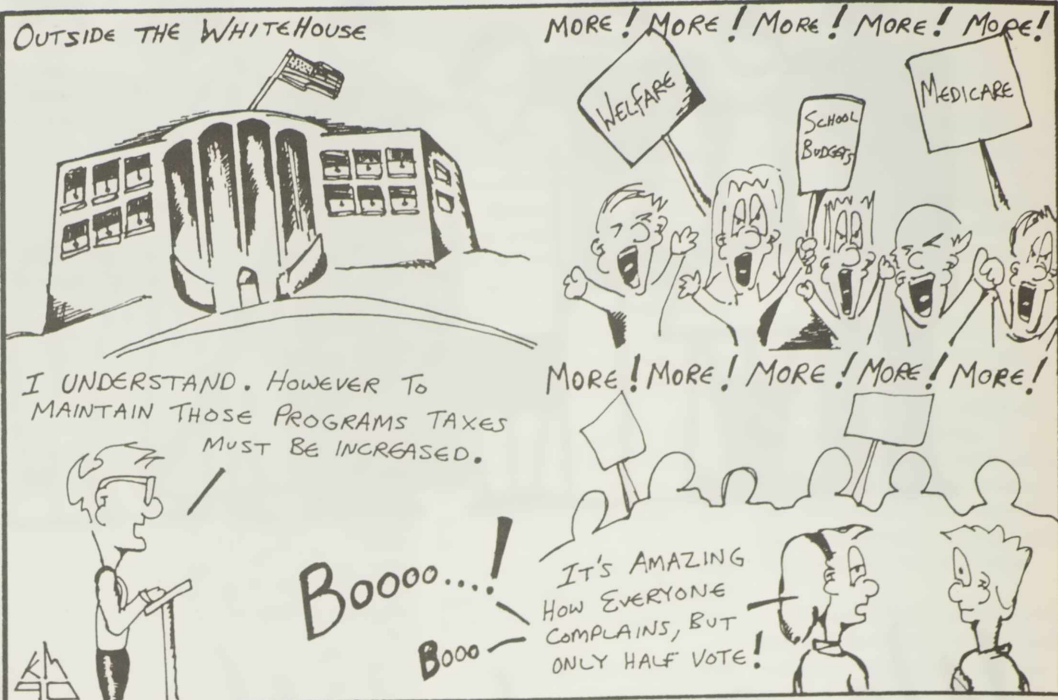 OUTSIDE THE WHITEHOUSE
MORE! MORE! MORE! MORE! MORE!
WELFARE
SCHOOL
BUDGETS
MEDICARE
I UNDERSTAND. HOWEVER TO
MAINTAIN THOSE PROGRAMS TAXES
MUST BE INCREASED.
BOOOO...!
BOOO
MORE! MORE! MORE! MORE! MORE!
IT'S AMAZING
HOW EVERYONE
COMPLAINS, BUT
ONLY HALF VOTE!